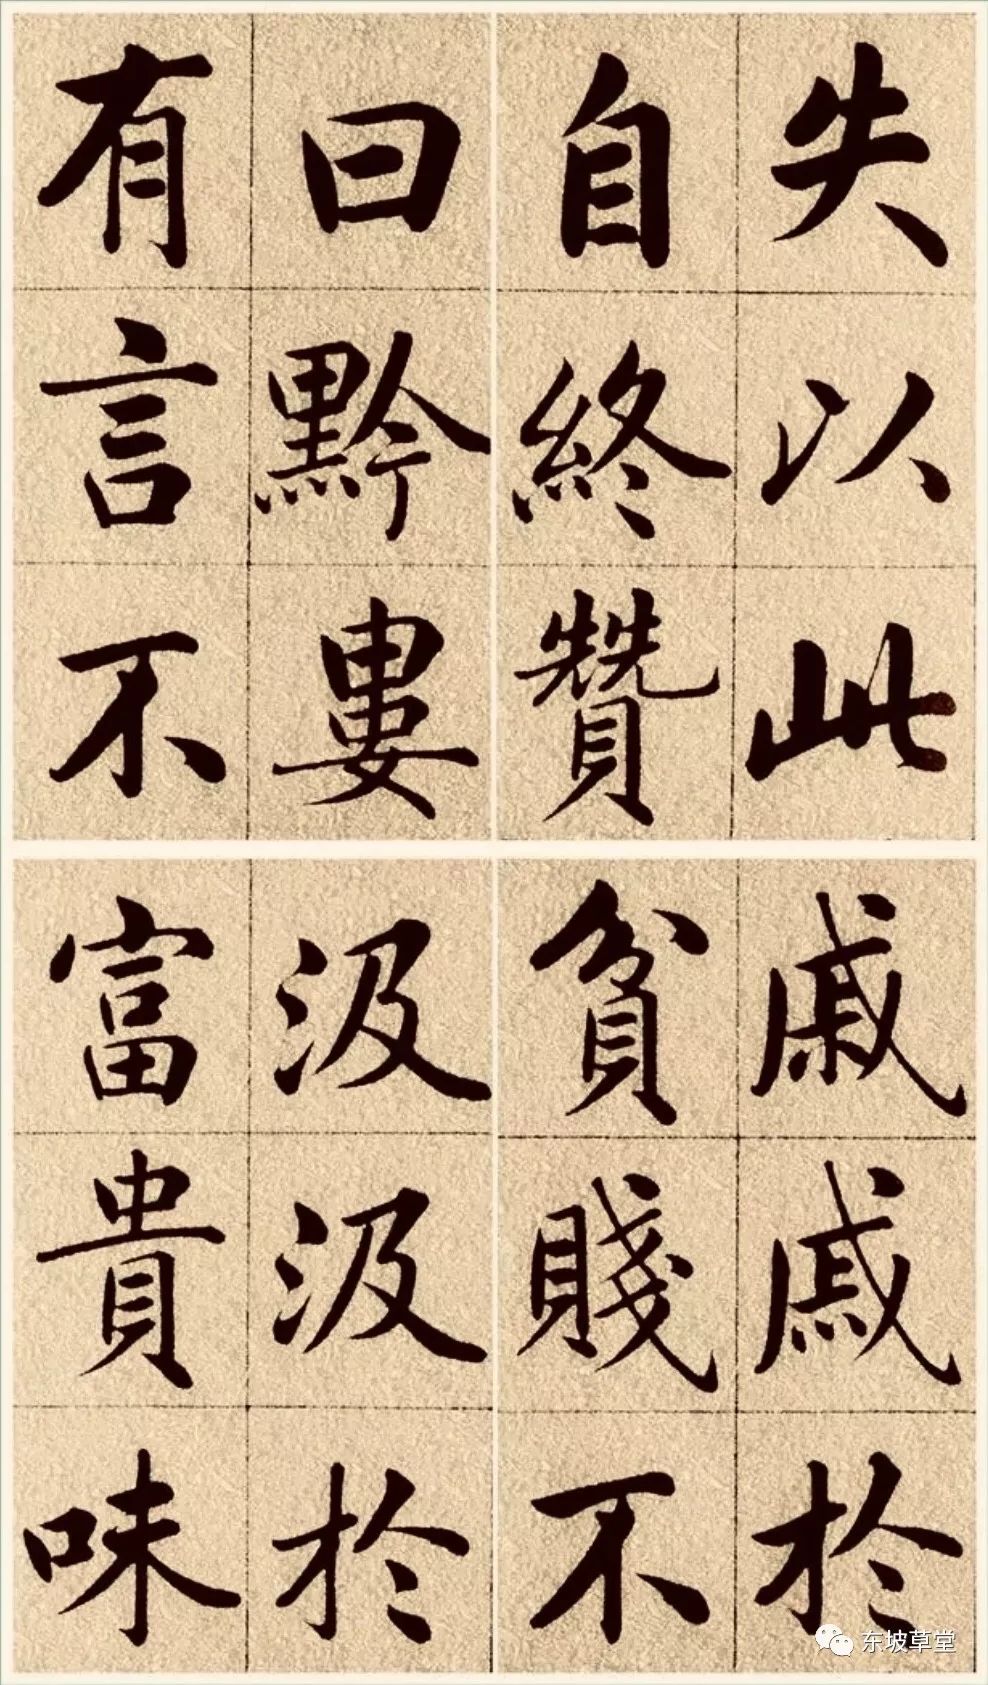 失以此
自終贊
曰黔婁
有言不
戚戚於
貧賤不
汲汲於
富貴味
东坡草堂